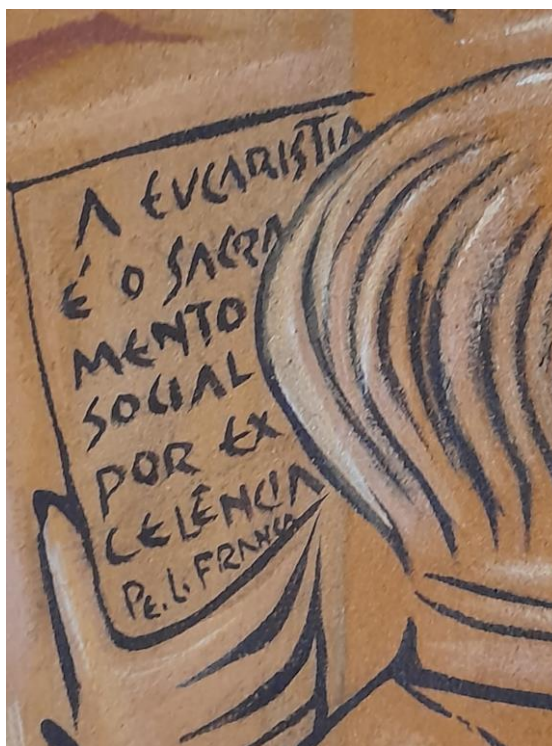 A EUCARISTIA
É O SACRA
MENTO
SOCIAL
POR EX
CELÊNCIA
PE. L. FRANCA